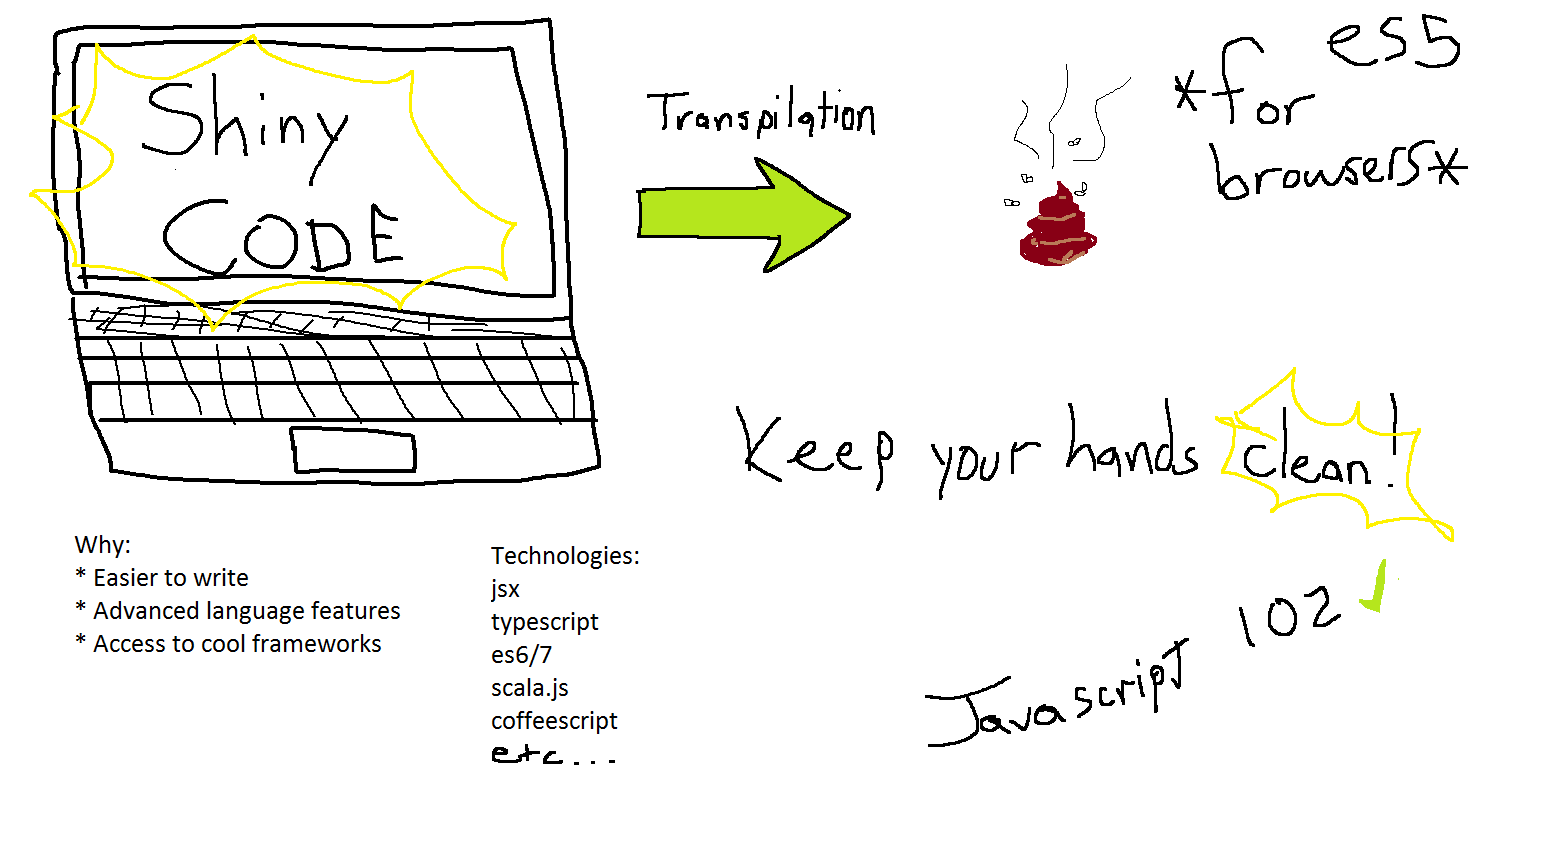 Shiny
CODE
Transpilation
es5
*for
browsers*
Keep your hands clean!
Why:
* Easier to write
* Advanced language features
* Access to cool frameworks
Technologies:
jsx
typescript
es6/7
scala.js
coffeescript
etc...
Javascript 102